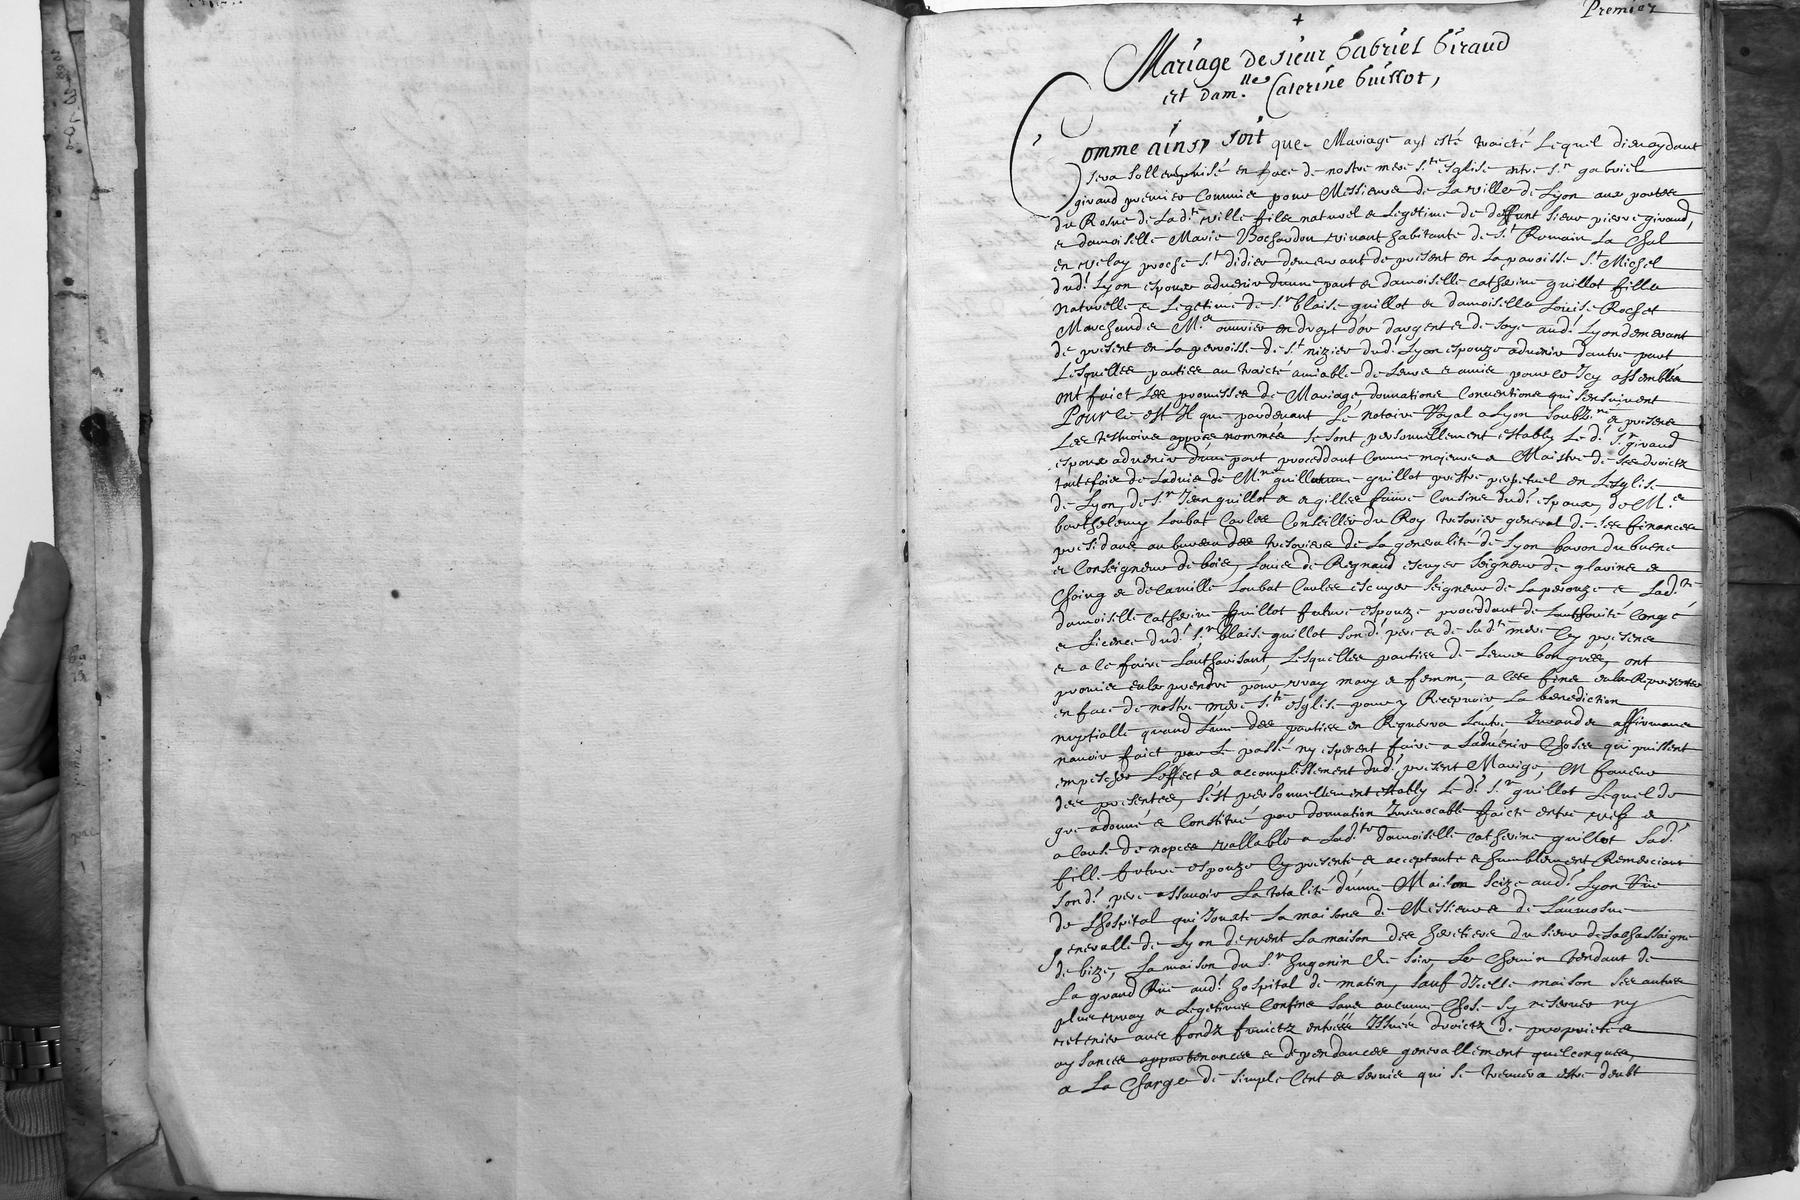 Premier
Mariage de sieur Gabriel Giraud
et dam.lle Caterine Guillot,
Comme ainsy soit que Mariage ayt esté traicté Lequel dieu aydant
sera sollempnisé en face de nostre mere s.te esglise entre s.r gabriel
giraud premier Commis pour Messieurs de La ville de Lyon aux portes
du Rosne de La d.te ville fils naturel & Legitime de deffunt sieur pierre giraud,
& damoiselle Marie Bochardon vivant habitante de s.t Romain La Chal
en velay proche s.t didier demeurant de present en La paroisse s.t Michel
dud.t Lyon espoux advenir d'une part & damoiselle catherine guillot fille
Naturelle & Legitime de s.r blaise guillot & damoiselle Louise Rochet
Marchand & M.e ouvrier en drapt d'or d'argent & de soye aud.t Lyon demeurant
de present en La parroisse de s.t nizier dud.t Lyon espouze advenir d'autre part
Lesquelles parties au traicté amiable de Leurs & amis pour ce Icy assemblés
ont faict Les promisses de Mariage, donnations Conventions qui sensuivent
Pour Ce est Il que pardevant Le notaire Royal a Lyon soubz.né & presens
Les tesmoins appres nommés se sont personnellement establys Le d.t s.r giraud
espoux advenir d'une part proceddant Comme majeur & Maistre de ses droictz
toutefois de Ladvis de M.re guillaume guillot prestre perpetuel en Lesglise
de Lyon, de s.r Jean guillot & gilles faure Cousins dud.t espoux, de M.e
barthelemy Loubat Carles Conseiller du Roy tresorier general de ses finances
presidant au bureau des tresoriers de La generalité de Lyon baron du buene
& Conseigneur de bois, Louis de Reynaud escuyer seigneur de glavins &
Choing & de Camille Loubat Carles escuyer seigneur de La perouze & Lad.te
damoiselle catherine guillot future espouze proceddant de Lauthorité Congé
& Licence dud.t s.r blaise guillot son d.t pere & de sa d.te mere Cy presens
& a le faire L'authorisant, Lesquelles parties de Leurs bon grés, ont
promis prendre pour vray mary & femme, a ces fins se Representer
en face de nostre mere s.te esglise pour y Recepvoir La benediction
nuptialle quand L'une des parties en Requerra L'autre Jurand & affirmans
navoir faict par Le passé ny esperent faire a L'advenir Choses qui puissent
empescher L'effect & accomplissement dud.t present Mariage, En faveur
des presentes, s'est personnellement estably Le d.t s.r guillot Lequel de
gré a donné & Constitué par donnation Irrevocable faicte entre vifs &
a Cause de nopces vallable a Lad.te damoiselle catherine guillot sad.t
fille future espouze Cy presente & acceptante & humblement Remerciant
son d.t pere assavoir La totalité d'une Maison seize aud.t Lyon Rüe
de L'hospital qui Jouxte La maisons de Messieurs de L'aumosne
generalle de Lyon de vent La maison des heretiers du sieur de La chassaigne
de bize, La maison du s.r huganin de soir, Le Chemin tendant de
La grand Rüe aud.t hospital de matin, sauf d'Icelle maison ses autres
plus vray & Legitimes Confins sans aucune Chose sy reserver ny
retenir avec fondz fruictz entrées Issues droictz de proprietés
aysances appartenances & dependances generallement quelconques,
a La Charge de simple Cens & servis qui se treuvera estre deubt